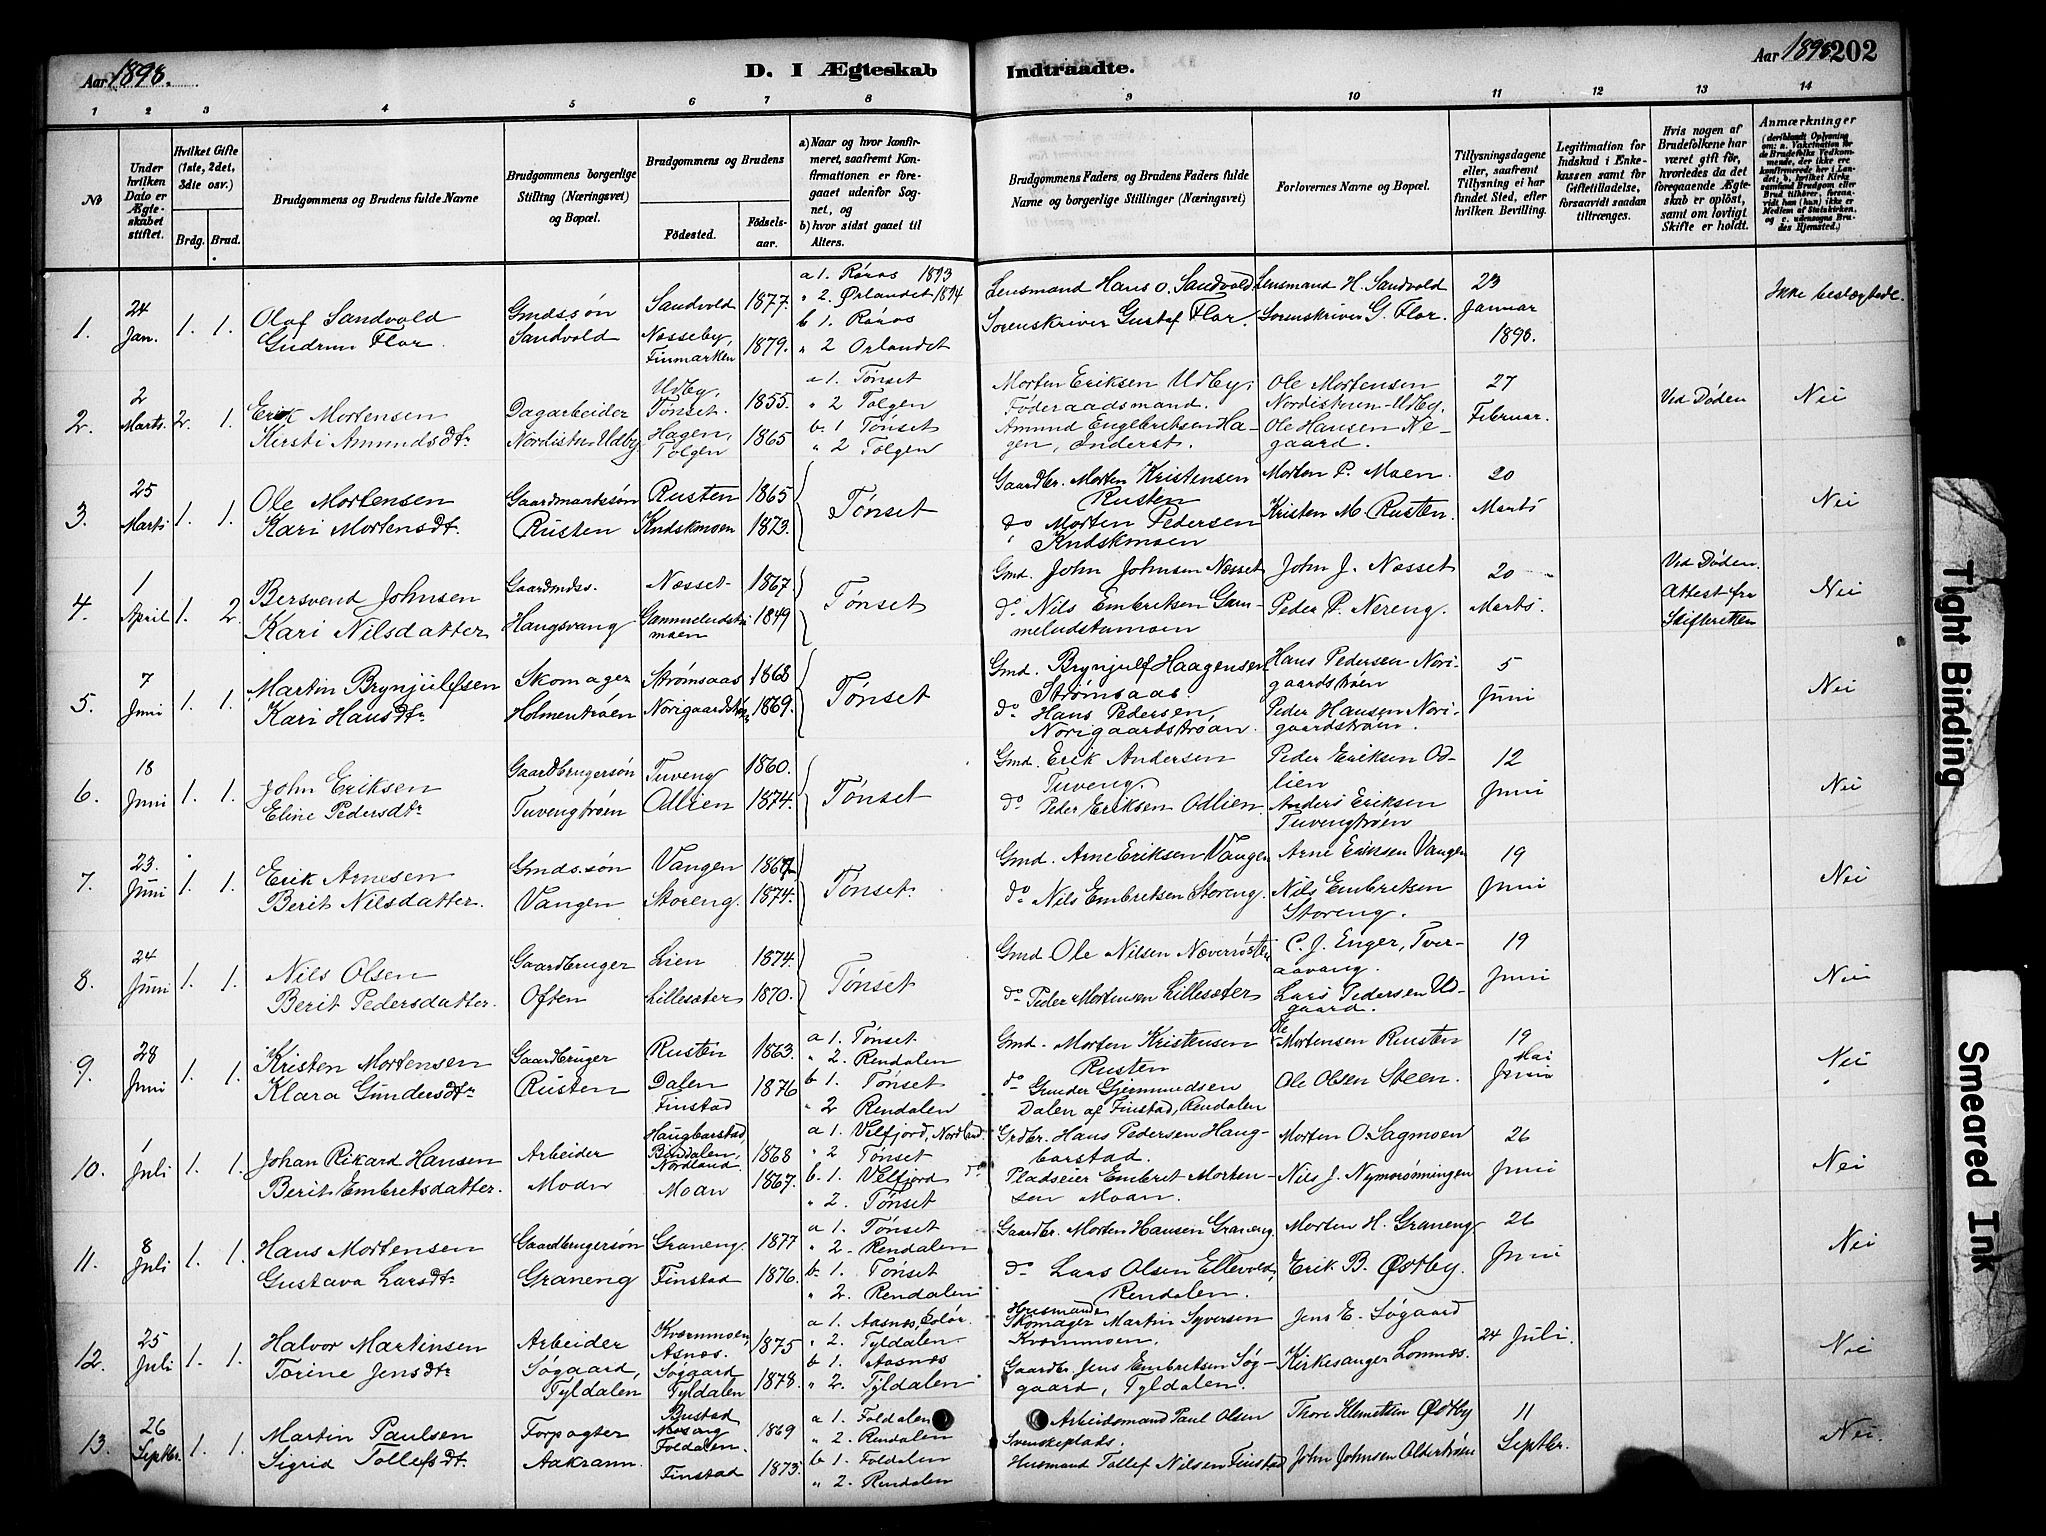 Aar 1898.
D. I Ægteskab
Indtraadte.
Aar 1898
202
1 2 3 4 5 6 7 8 9 10 11 12 13 14
No
Under hvilken Dato er Ægteskabet stiftet.
Hvilket Gifte (1ste, 2det, 3die osv.)
Brdg. Brud.
Brudgommens og Brudens fulde Navne
Brudgommens borgerlige Stilling (Næringsvei) og Bopæl.
Brudgommens og Brudens
Födested.
Födselsaar.
a) Naar og hvor konfirmeret, saafremt Konfirmationen er foregaaet udenfor Sognet, og
b) hvor sidst gaaet til Alters.
Brudgommens Faders og Brudens Faders fulde Navne og borgerlige Stillinger (Næringsvei)
Forlovernes Navne og Bopæl.
Tillysningsdagene eller, saafremt Tillysning ei har fundet Sted, efter hvilken Bevilling.
Legitimation for Indskud i Enkekassen samt for Giftetilladelse, forsaavidt saadan tiltrænges.
Hvis nogen af Brudefolkene har været gift för, hvorledes da det foregaaende Ægteskab er oplöst, samt om lovligt Skifte er holdt.
Anmærkninger
1. 24 Jan. 1. 1.
Olaf Sandvold
Gudrun Flor.
Gmdssøn
Sandvold
Sandvold 1877.
Nesseby, Finmarken 1879.
a 1. Røros 1893
" 2. Ørlandet 1894
b 1. Røros
" 2 Orlandet
Lensmand Hans O. Sandvold
Sorenskriver Gustaf Flor.
Lensmand H. Sandvold
Sorenskriver G. Flor.
23 Januar 1898.
Ikke beslægtede.
2. 2 Marts. 2. 1.
Erik Mortensen
Kirsti Amundsdtr
Dagarbeider
Nordistun Udby
Udby, Tønset. 1855.
Hagen, Tolgen 1865
a 1. Tønset
" 2 Tolgen
b. 1 Tønset
" 2 Tolgen
Morten Eriksen Udby,
Føderaadsmand.
Amund Engebretsen Hagen, Inderst.
Ole Mortensen
Nordistuen-Udby.
Ole Hansen Negaard.
27 Februar.
Ved Døden
Nei
3. 25 Marts 1. 1.
Ole Mortensen
Kari Mortensdtr.
Gaardmandssøn
Rusten
Rusten 1865
Kndskmoen 1873.
Tønset
Gaardbr. Morten Kristensen
Rusten
do Morten Pedersen
Kndskmoen
Morten P. Moen.
Kristen M. Rusten.
20 Marts
Nei
4. 1 April 1. 2.
Bersvend Johnsen
Kari Nilsdatter
Gaardmds.
Haugsvang
Næsset 1867.
Gammeludstumoen 1849
Tønset
Gmd. John Johnsen Næsset
do. Nils Embretsen Gammeludstumoen
John J. Næsset
Peder P. Nereng.
20 Marts.
Ved Døden.
Attest fra Skifteretten
Nei
5. 7 Juni 1. 1.
Martin Brynjulfsen
Kari Hansdtr
Skomager
Holmentrøen
Strømsaas 1868
Norigaardstrøen 1869.
Tønset
Gmd. Brynjulf Haagensen
Strømsaas.
do. Hans Pedersen,
Norigaardstrøan.
Hans Pedersen Norigaardstrøen
Peder Hansen Norigaardstrøen.
5 Juni
Nei
6. 18 Juni 1. 1.
John Eriksen
Eline Pedersdtr.
Gaardbrugersøn
Tuvengtrøen
Tuveng 1860.
Odlien 1874.
Tønset
Gmd. Erik Andersen
Tuveng.
do Peder Eriksen Odlien.
Peder Eriksen Odlien
Anders Eriksen
Tuvengtrøen
12 Juni
Nei
7. 23. Juni 1. 1.
Erik Arnesen
Berit Nilsdatter.
Gmds.søn
Vangen
Vangen 1867
Storeng. 1874.
Tønset.
Gmd. Arne Eriksen Vangen
do. Nils Embretsen Storeng.
Arne Eriksen Vangen
Nils Embretsen
Storeng.
19 Juni
Nei
8. 24 Juni 1. 1.
Nils Olsen
Berit Pedersdatter.
Gaardbruger
Often
Lien 1874.
Lillesæter 1870.
Tønset
Gmd Ole Nilsen Næverrøsten
do. Peder Mortensen Lillesæter
C. J. Enger, Tveraavang.
Lars Pedersen Udgaard.
19 Juni
Nei
9. 28 Juni 1. 1.
Kristen Mortensen
Klara Gundersdtr
Gaardbruger
Rusten
Rusten 1863.
Dalen Finstad 1876
a 1. Tønset
" 2. Rendalen
b 1. Tønset
" 2 Rendalen
Gmd. Morten Kristensen
Rusten
do Gunder Gjermundsen
Dalen af Finstad, Rendalen
Ole Mortensen Rusten
Ole Olsen Steen.
19 Mai Juni
Nei
10. 1 Juli 1. 1.
Johan Rikard Hansen
Berit Embretsdatter.
Arbeider
Moan
Haugbarstad, Bindalen, Nordland. 1868
Moan 1867.
a 1. Velfjord, Nordland.
" 2 Tønset
b. 1. Velfjord do
" 2. Tønset
Grdbr. Hans Pedersen Haugbarstad.
Pladseier Embret Mortensen Moan.
Morten O. Sagmoen
Nils J. Nymorønningen
26 Juni
Nei
11. 8 Juli 1. 1.
Hans Mortensen
Gustava Larsdtr
Gaardbrugersøn
Graneng
Graneng. 1877
Finstad 1876.
a 1. Tønset
" 2. Rendalen
b. 1. Tønset
" 2. Rendalen
Gaardbr. Morten Hansen Graneng.
do Lars Olsen Ellevold,
Rendalen.
Morten H. Graneng.
Erik B. Østby.
26 Juni
Nei
12. 25 Juli 1. 1.
Halvor Martinsen
Torine Jensdtr
Arbeider
Søgaard, Tyldalen
Kværnmoen, Asnæs. 1875
Søgaard Tyldalen 1878.
a 1. Aasnæs, Solør.
" 2. Tyldalen
b 1. Aasnæs
" 2. Tyldalen
Husmand
Skomager Martin Syversen
Kværnmoen.
Gaardbr. Jens Embretsen Søgaard, Tyldalen.
Jens E. Søgaard
Kirkesanger Lomnæs.
24 Juli.
Nei
13. 26 Septbr. 1. 1.
Martin Paulsen
Sigrid Tollefsdtr.
Forpagter
Aakrann.
Bustad Foldalen. 1869
Finstad 1873.
a 1. Foldalen
" 2. Rendalen
b 1. Foldalen
" 2. Rendalen
Arbeidsmand Paul Olsen
Svenskeplads.
Husmand Tollef Nilsen Finstad
Thore Klemetsen Østby
John Johnsen Oldertrøen
11 Septbr.
Nei.
Tight Binding
Smeared Ink